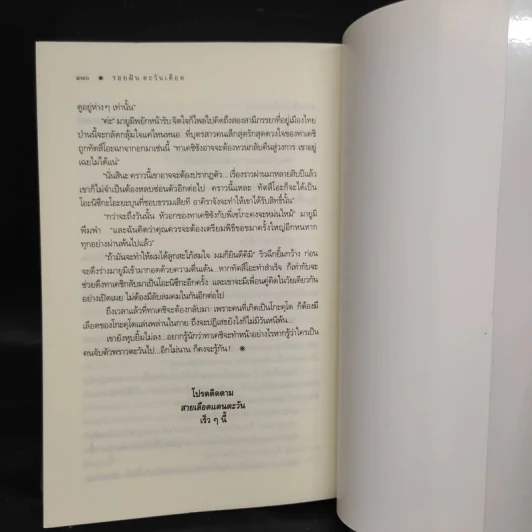 ๔๗๐ ๏ รอยฝัน ตะวันเดือด
ดูอยู่ห่างๆ เท่านั้น"
"ค่ะ" มายูมิพยักหน้ารับ จิตใจก็ไพล่ไปคิดถึงสองสามีภรรยาที่อยู่เมืองไทย
ป่านนี้จะกลัดกลุ้มใจแค่ไหนหนอ ที่บุตรสาวคนเล็กสุดรักสุดดวงใจของทาเคชิ
ถูกทัตสึโอะฉกจากอกมาเช่นนี้ "ทาเคชิซังอาจจะต้องหวนกลับคืนสู่วงการ เขาอยู่
เฉยไม่ได้แน่"
"นั่นสินะ คราวนี้เขาอาจจะต้องปรากฏตัว... เรื่องราวผ่านมาหลายสิบปีแล้ว
เขาก็ไม่จำเป็นต้องหลบซ่อนตัวอีกต่อไป คราวนี้แหละ ทัตสึโอะก็จะได้เป็น
โอะนิสึกะโอะยะบุนที่ชอบธรรมเสียที อาคิราจังจะทำให้เขาได้รับสิทธิ์นั้น"
"กว่าจะถึงวันนั้น หัวอกของทาเคชิซังกับพี่เซโกะคงจะหม่นไหม้" มายูมิ
พึมพำ "และฉันคิดว่าคุณควรจะต้องเตรียมพิธีขอขมาครั้งใหญ่อีกหนหาก
ทุกอย่างผ่านพ้นไปแล้ว"
"ถ้ามันจะทำให้ผมได้ลูกสะใภ้สมใจ ผมก็ยินดีคีมิ" ริวฉีกยิ้มกว้าง ก่อน
จะดึงร่างมายูมิเข้ามากอดด้วยความตื่นเต้น...หากทัตสึโอะทำสำเร็จ ก็เท่ากับจะ
ช่วยดึงทาเคชิกลับมาเป็นโอะนิสึกะอีกครั้ง และเขาจะมีเพื่อนคู่คิดในวัยเดียวกัน
อย่างเปิดเผย ไม่ต้องมีลับลมคมในกันอีกต่อไป
ถึงเวลาแล้วที่ทาเคชิจะต้องกลับมา เพราะคนที่เกิดเป็นโกะคุโด ก็ต้องมี
เลือดของโกะคุโดแล่นพล่านในกาย ถึงจะปฏิเสธยังไงก็ไม่มีวันหนีพ้น...
เขายังหุบยิ้มไม่ลง...อยากรู้นักว่าทาเคชิจะทำอย่างไรหากรู้ว่าใครเป็น
คนจับตัวพราวตะวันไป...อีกไม่นาน ก็คงจะรู้กัน!
โปรดติดตาม
สายเลือดแดนตะวัน
เร็ว ๆ นี้